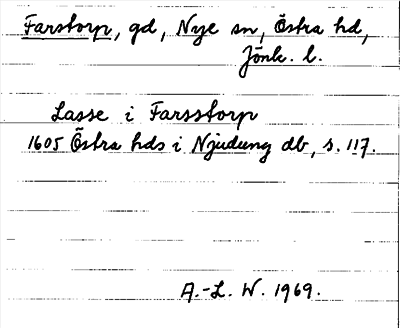 Farstorp, gd, Nye sn, Östra hd,
Jönk. l.
Lasse i Farsstorp
1605 Östra hds i Njudung db, s. 117.
A.-L. W. 1969.